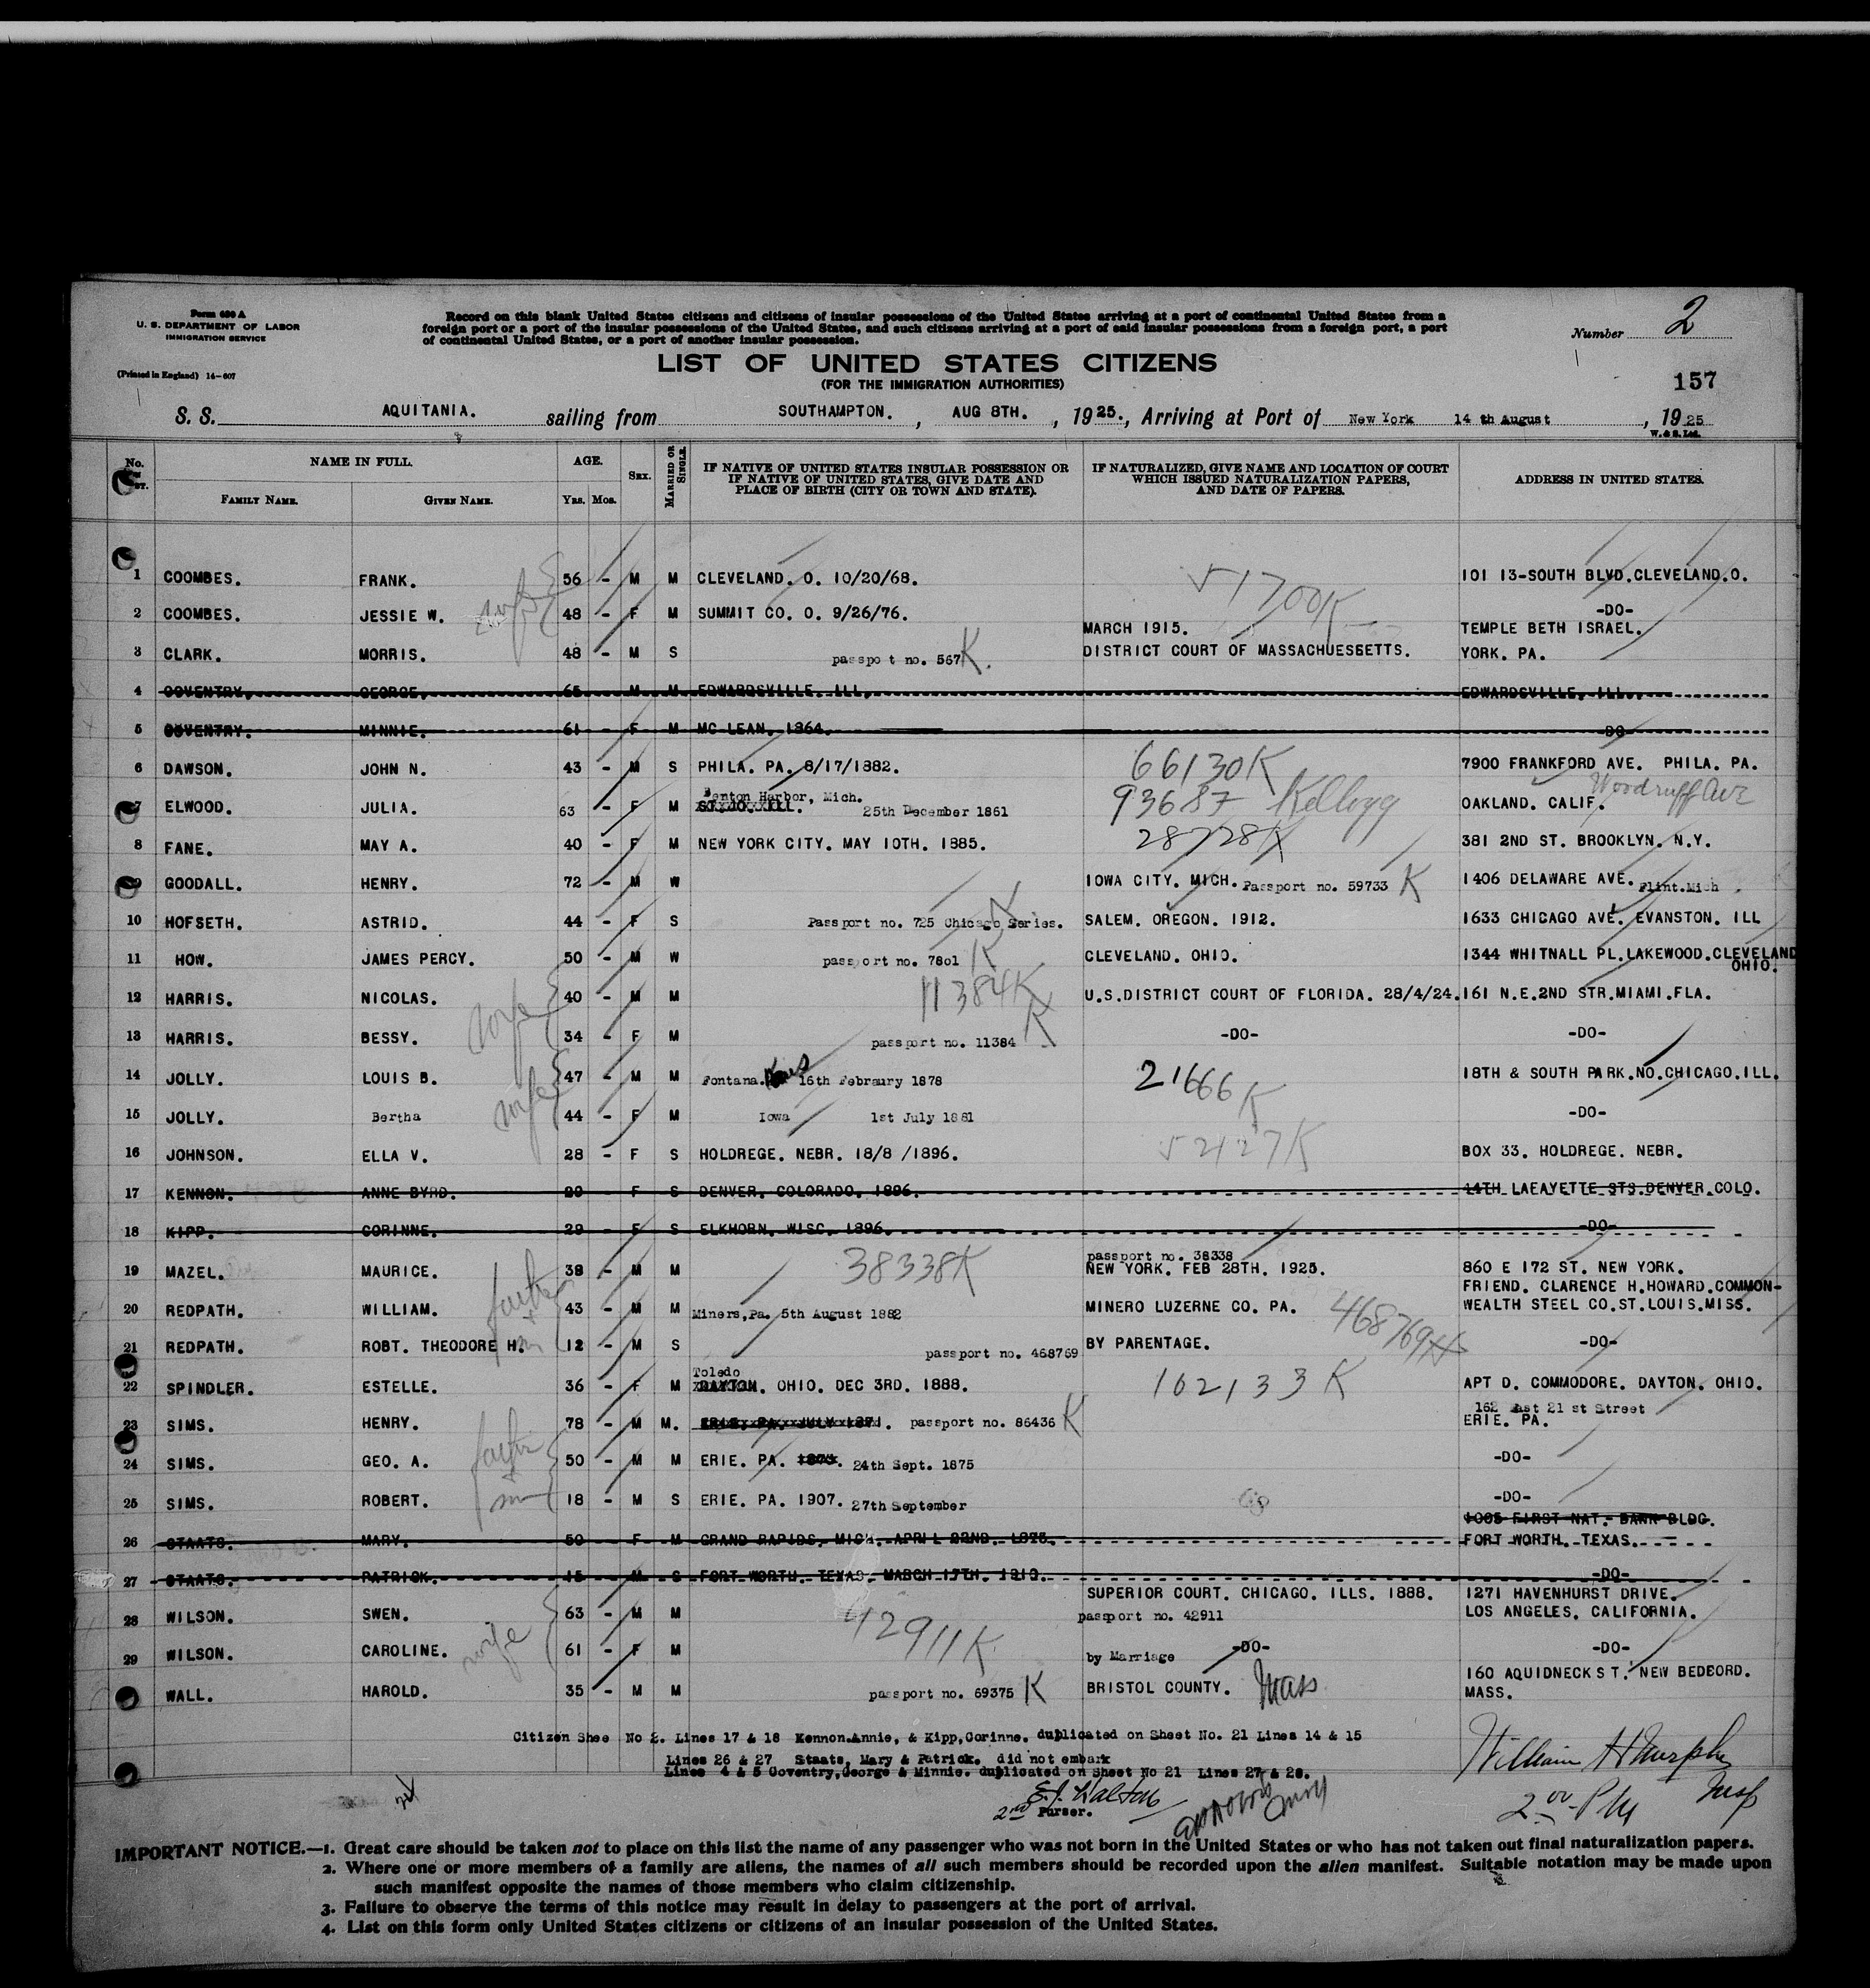 Form 630 A
U. S. DEPARTMENT OF LABOR
IMMIGRATION SERVICE
(Printed in England) 14-607
Record on this blank United States citizens and citizens of insular possessions of the United States arriving at a port of continental United States from a
foreign port or a port of the insular possessions of the United States, and such citizens arriving at a port of said insular possessions from a foreign port, a port
of continental United States, or a port of another insular possession.
Number 2
LIST OF UNITED STATES CITIZENS
(FOR THE IMMIGRATION AUTHORITIES)
157
S. S. AQUITANIA. sailing from SOUTHAMPTON. , AUG 8TH. , 1925., Arriving at Port of New York 14 th August , 1925
W. & S. Ltd.
No. NAME IN FULL. AGE. SEX. MARRIED OR SINGLE. IF NATIVE OF UNITED STATES INSULAR POSSESSION OR IF NATIVE OF UNITED STATES, GIVE DATE AND PLACE OF BIRTH (CITY OR TOWN AND STATE). IF NATURALIZED, GIVE NAME AND LOCATION OF COURT WHICH ISSUED NATURALIZATION PAPERS, AND DATE OF PAPERS. ADDRESS IN UNITED STATES.
FAMILY NAME. GIVEN NAME. YRS. MOS.
1 COOMBES. FRANK. 56 - M M CLEVELAND. O. 10/20/68. 51700K 101 13-SOUTH BLVD.CLEVELAND.O.
wife
2 COOMBES. JESSIE W. 48 - F M SUMMIT CO. O. 9/26/76. -DO-
MARCH 1915. TEMPLE BETH ISRAEL.
3 CLARK. MORRIS. 48 - M S passpo t no. 567 K. DISTRICT COURT OF MASSACHUESSETTS. YORK. PA.
4 COVENTRY. GEORGE. 65 - M M EDWARDSVILLE. ILL. EDWARDSVILLE. ILL.
5 COVENTRY. MINNIE. 61 - F M MC LEAN. 1864. -DO-
6 DAWSON. JOHN N. 43 - M S PHILA. PA. 8/17/1882. 66130K 7900 FRANKFORD AVE. PHILA. PA.
Benton Harbor, Mich. Woodruff Ave
7 ELWOOD. JULIA. 63 - F M 25th December 1861 93687 Kellogg OAKLAND. CALIF.
8 FANE. MAY A. 40 - F M NEW YORK CITY. MAY 10TH. 1885. 28728K 381 2ND ST. BROOKLYN. N.Y.
9 GOODALL. HENRY. 72 - M W IOWA CITY. MICH. Passport no. 59733 K 1406 DELAWARE AVE. Flint.Mich
10 HOFSETH. ASTRID. 44 - F S Passport no. 725 Chicago Series. K SALEM. OREGON. 1912. 1633 CHICAGO AVE. EVANSTON. ILL
11 HOW. JAMES PERCY. 50 - M W passport no. 7801 K CLEVELAND. OHIO. 1344 WHITNALL PL.LAKEWOOD.CLEVELAND
OHIO.
12 HARRIS. NICOLAS. 40 - M M 11384K U.S.DISTRICT COURT OF FLORIDA. 28/4/24. 161 N.E.2ND STR.MIAMI.FLA.
wife
13 HARRIS. BESSY. 34 - F M passport no. 11384 K -DO- -DO-
14 JOLLY. LOUIS B. 47 - M M Fontana. Kans 16th Febraury 1878 21666 K 18TH & SOUTH PARK.NO.CHICAGO.ILL.
wife
15 JOLLY. Bertha 44 - F M Iowa 1st July 1881 -DO-
16 JOHNSON. ELLA V. 28 - F S HOLDREGE. NEBR. 18/8 /1896. 52127K BOX 33. HOLDREGE. NEBR.
17 KENNON. ANNE BYRD. 29 - F S DENVER. COLORADO. 1896. 14TH LAFAYETTE STS.DENVER.COLO.
18 KIPP. CORINNE. 29 - F S ELKHORN. WISC. 1896. -DO-
passport no. 38338
19 MAZEL. MAURICE. 38 - M M 38338K NEW YORK. FEB 28TH. 1925. 860 E 172 ST. NEW YORK.
FRIEND. CLARENCE H.HOWARD.COMMON-
20 REDPATH. WILLIAM. 43 - M M Miners,Pa. 5th August 1882 MINERO LUZERNE CO. PA. 468769 WEALTH STEEL CO.ST.LOUIS.MISS.
father + son
21 REDPATH. ROBT. THEODORE H. 12 - M S passport no. 468769 BY PARENTAGE. -DO-
Toledo
22 SPINDLER. ESTELLE. 36 - F M DAYTON. OHIO. DEC 3RD. 1888. 102133 K APT D. COMMODORE. DAYTON. OHIO.
162 East 21 st Street
23 SIMS. HENRY. 78 - M M. passport no. 86436 K ERIE. PA.
father + son
24 SIMS. GEO. A. 50 - M M ERIE. PA. 1873. 24th Sept. 1875 -DO-
25 SIMS. ROBERT. 18 - M S ERIE. PA. 1907. 27th September -DO-
1005 FIRST NAT. BANK BLDG.
26 STAATS. MARY. 50 - F M GRAND RAPIDS. MICH. APRIL 22ND. 1875. FORT WORTH. TEXAS.
27 STAATS. PATRICK. 15 - M S FORT WORTH. TEXAS. MARCH 17TH. 1910. -DO-
SUPERIOR COURT. CHICAGO. ILLS. 1888. 1271 HAVENHURST DRIVE.
28 WILSON. SWEN. 63 - M M passport no. 42911 LOS ANGELES. CALIFORNIA.
wife 42911K
29 WILSON. CAROLINE. 61 - F M by Marriage -DO- -DO-
160 AQUIDNECK ST. NEW BEDBORD.
WALL. HAROLD. 35 - M M passport no. 69375 K BRISTOL COUNTY. Mass MASS.
Citizen Shee No 2. Lines 17 & 18 Kennon.Annie, & Kipp,Corinne. duplicated on Sheet No. 21 Lines 14 & 15
Lines 26 & 27 Staats, Mary & Patrick. did not embark
Lines 4 & 5 Coventry,George & Minnie. duplicated on Sheet No 21 Lines 27 & 28.
William H Murphy
Insp
2nd Purser.
2 00 PM
IMPORTANT NOTICE.—1. Great care should be taken not to place on this list the name of any passenger who was not born in the United States or who has not taken out final naturalization papers.
2. Where one or more members of a family are aliens, the names of all such members should be recorded upon the alien manifest. Suitable notation may be made upon
such manifest opposite the names of those members who claim citizenship.
3. Failure to observe the terms of this notice may result in delay to passengers at the port of arrival.
4. List on this form only United States citizens or citizens of an insular possession of the United States.